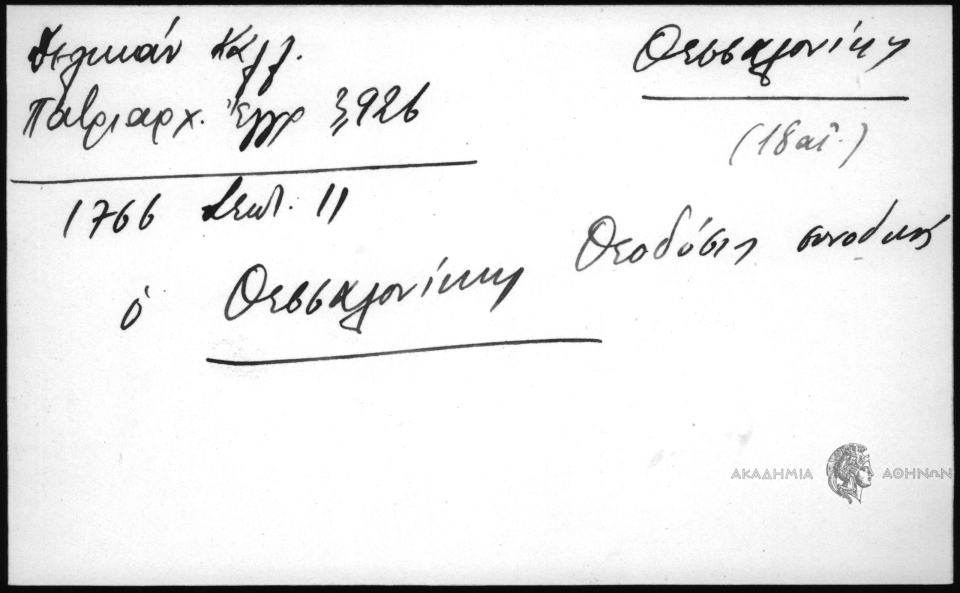 Δελικάν Καλλ.
Πατριαρχ. Ἔγγρ 3,926
Θεσσαλονίκη
(18 αἰ.)
1766 Σεπτ. 11
ὁ Θεσσαλονίκης Θεοδόσιος συνοδικός
ΑΚΑΔΗΜΙΑ ΑΘΗΝΩΝ